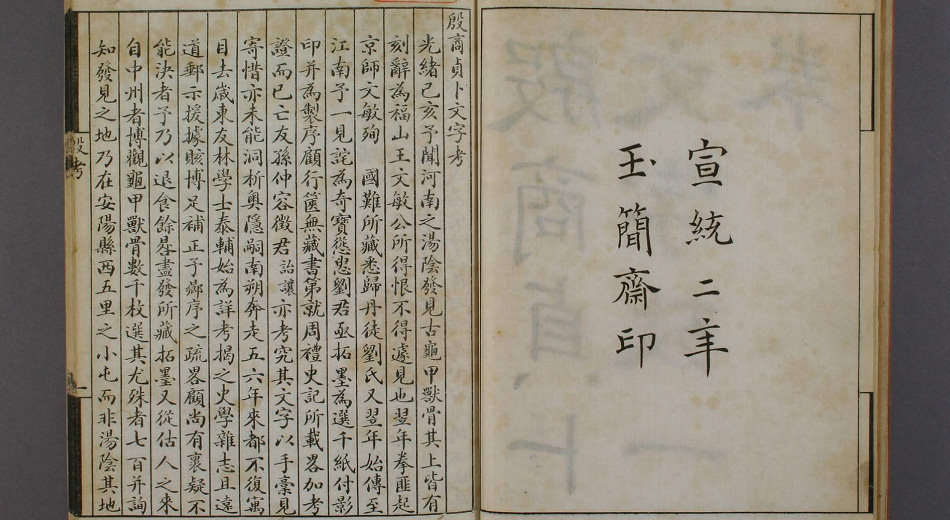 宣統二年
玉簡齋印
殷商貞卜文字考
光緒己亥予聞河南之湯陰發見古龜甲獸骨其上皆有
刻辭為福山王文敏公所得恨不得遽見也翌年拳匪起
京師文敏殉 國難所藏悉歸丹徒劉氏又翌年始傳至
江南予一見詫為奇寶慫恿劉君亟拓墨為選千紙付影
印并為製序顧行篋無藏書第就周禮史記所載畧加考
證而已亡友孫仲容徵君詒讓亦考究其文字以手稾見
寄惜亦未能洞析奧隱嗣南朔奔走五六年來都不復寓
目去歲東友林學士泰輔始為詳考揭之史學雜志且遠
道郵示援據賅博足補正予曏序之疏畧顧尚有褱疑不
能決者予乃以退食餘晷盡發所藏拓墨又從估人之來
自中州者博觀龜甲獸骨數千枚選其尤殊者七百并詢
知發見之地乃在安陽縣西五里之小屯而非湯陰其地
殷考
一